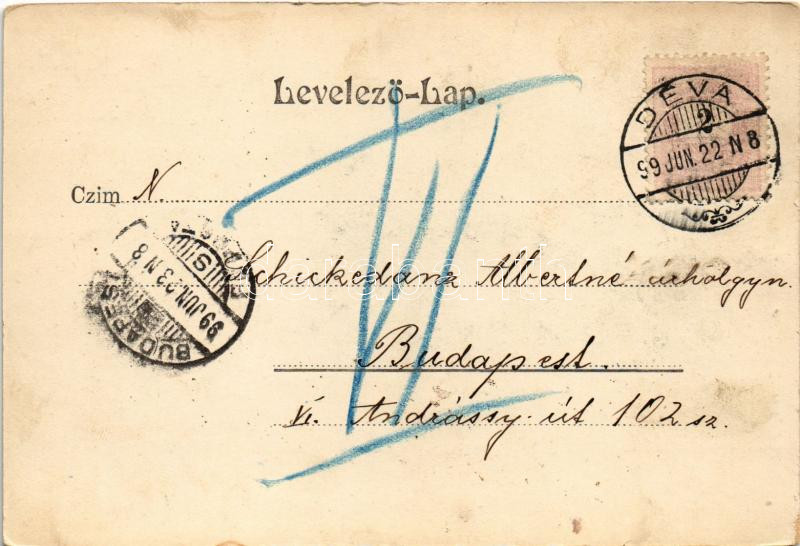 Levelező-Lap.
DÉVA
2
99 JUN. 22 N 8
Czim N.
Schickedanz Albertné úrhölgyn.
Budapest.
VI. Andrássy út 102 sz.
VI
BUDAPEST
99 JUN. 23 N 8
darabanth